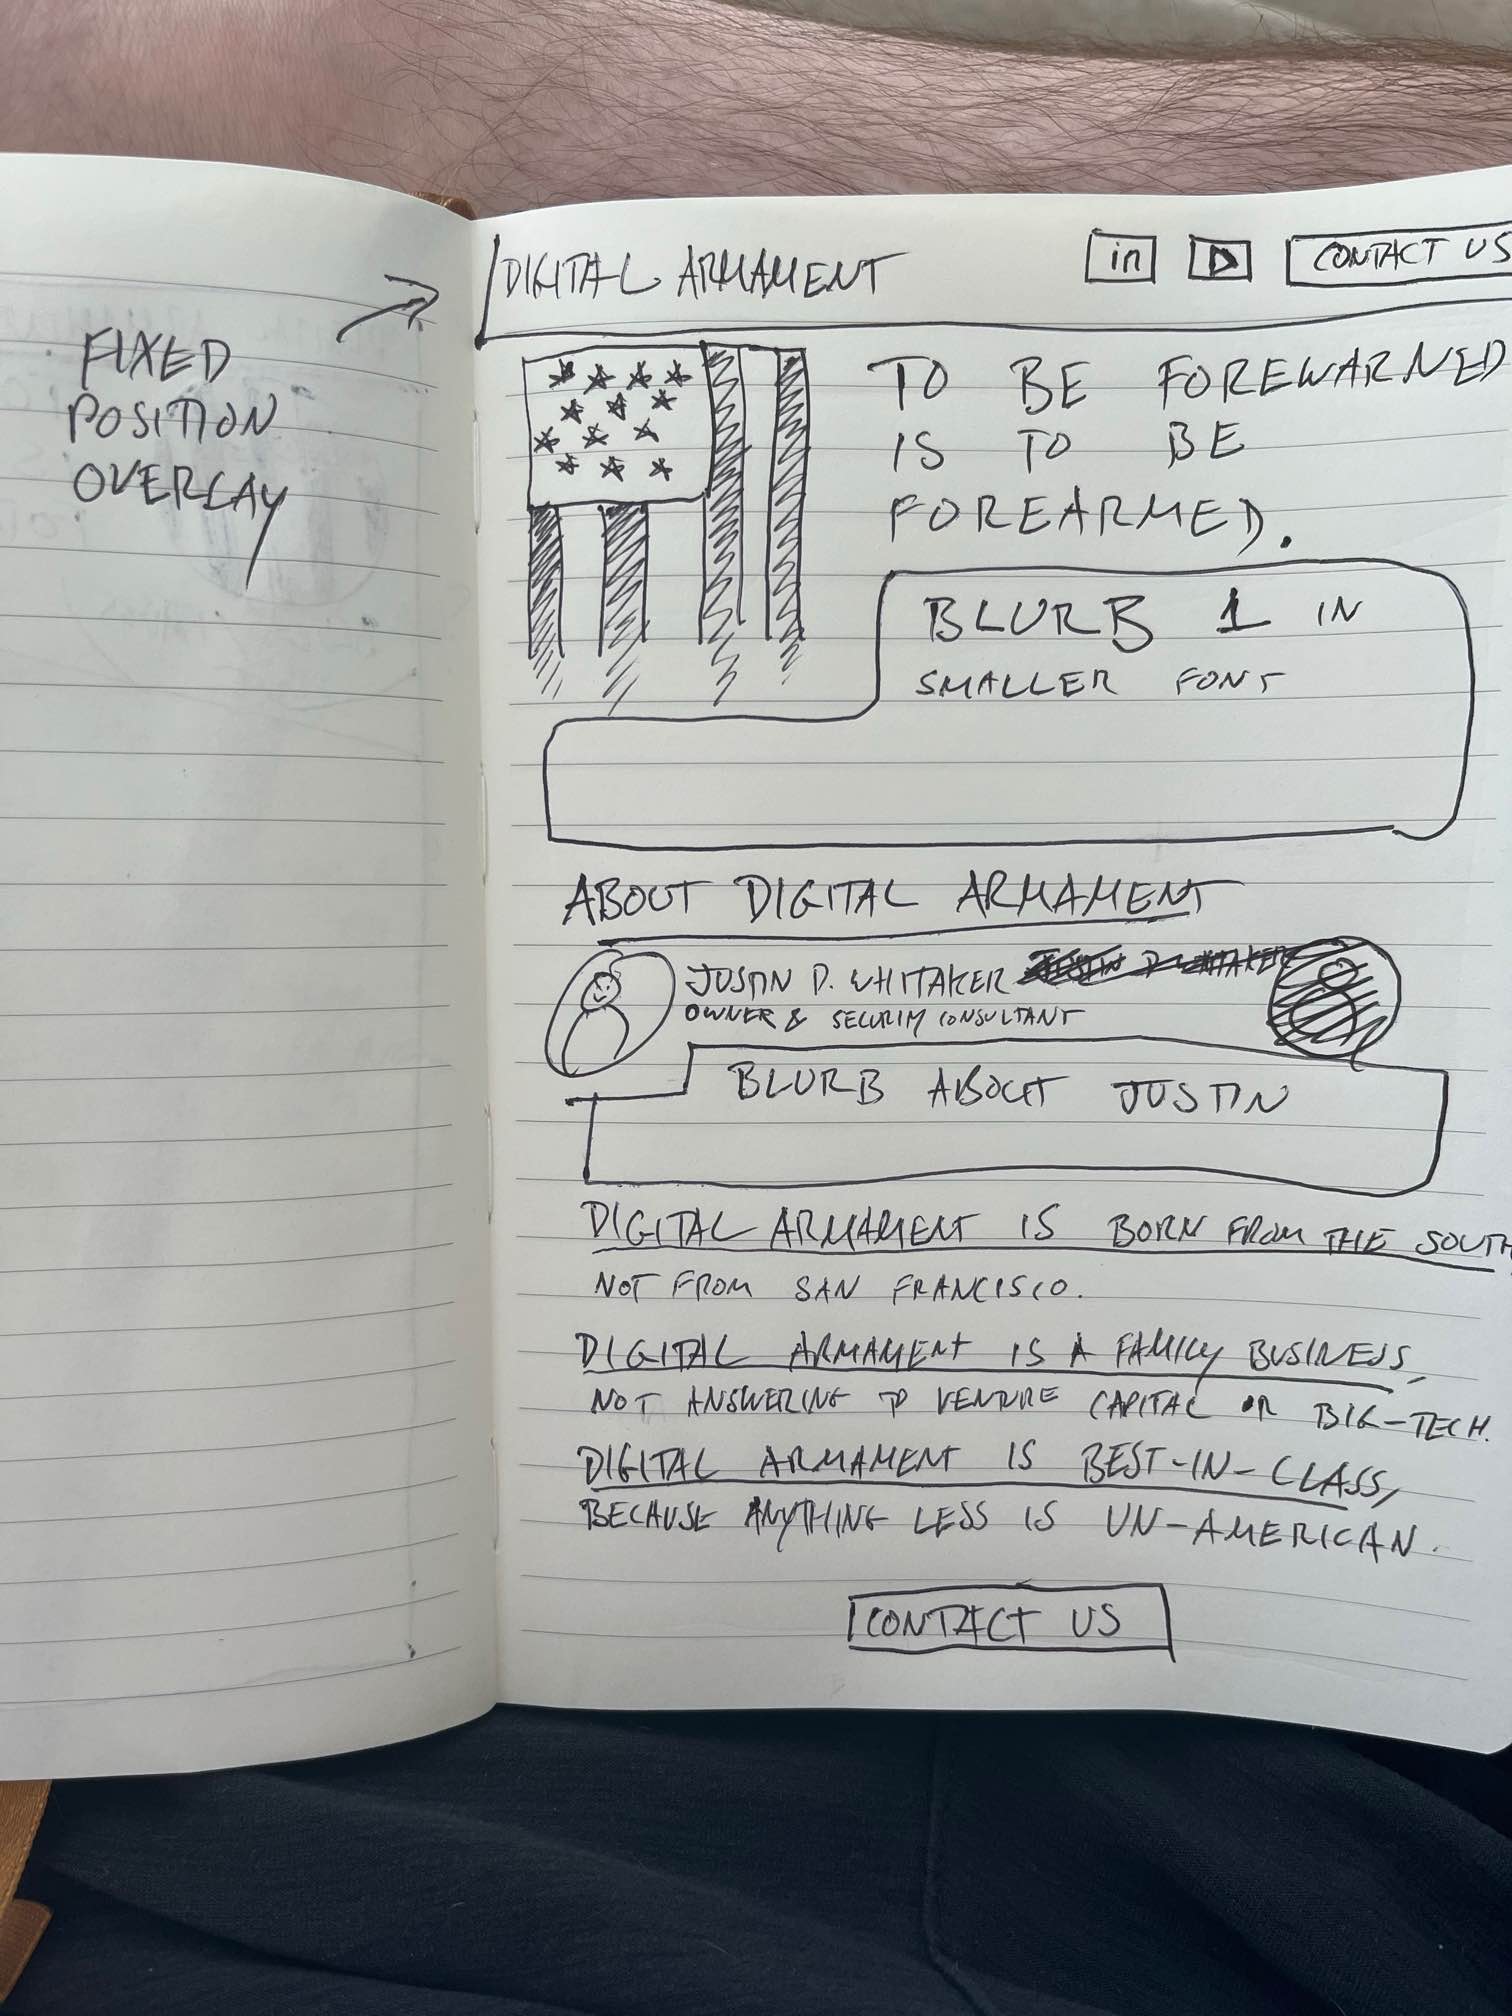 FIXED
POSITION
OVERLAY
DIGITAL ARMAMENT
in
CONTACT US
TO BE FOREWARNED
IS TO BE
FOREARMED.
BLURB 1 IN
SMALLER FONT
ABOUT DIGITAL ARMAMENT
JUSTIN D. WHITAKER
OWNER & SECURITY CONSULTANT
BLURB ABOUT JUSTIN
DIGITAL ARMAMENT IS BORN FROM THE SOUTH
NOT FROM SAN FRANCISCO.
DIGITAL ARMAMENT IS A FAMILY BUSINESS,
NOT ANSWERING TO VENTURE CAPITAL OR BIG-TECH.
DIGITAL ARMAMENT IS BEST-IN-CLASS,
BECAUSE ANYTHING LESS IS UN-AMERICAN.
CONTACT US